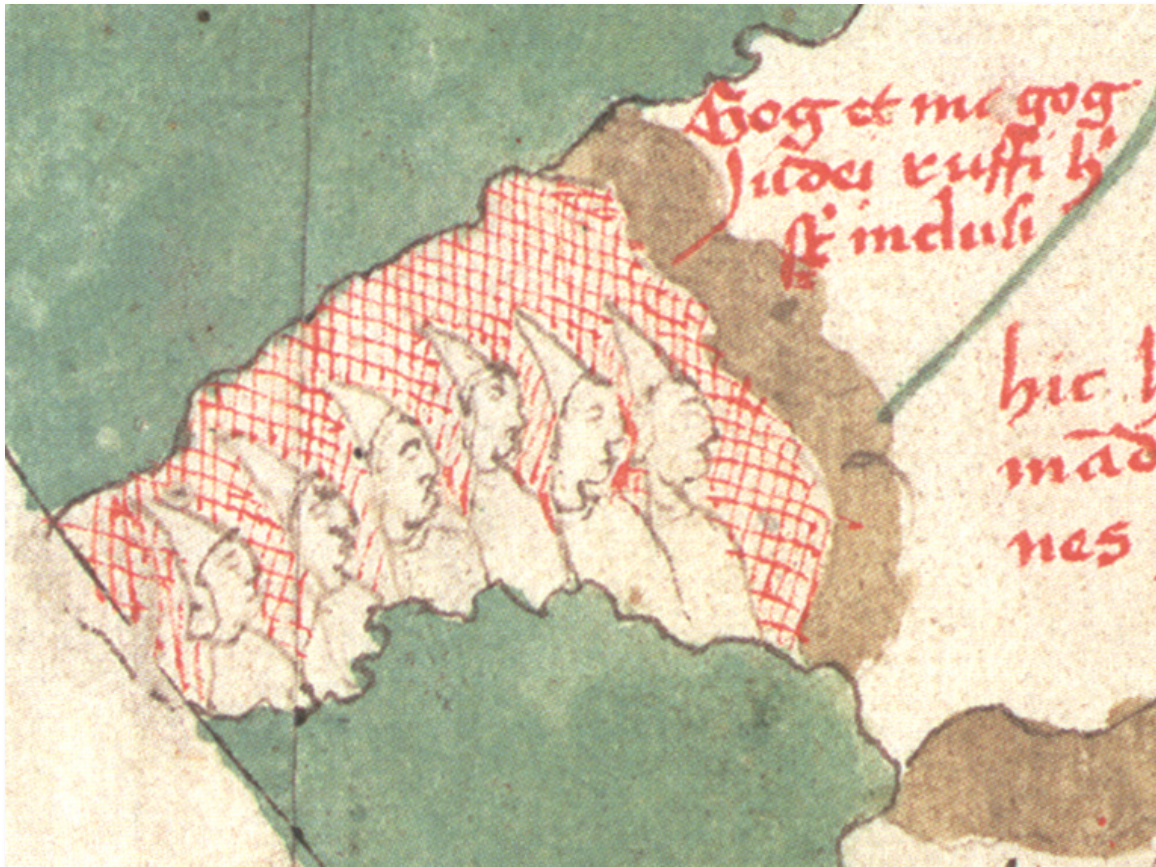 Gog et magog
iudei ruffi h'
st' inclusi
hic
mad
nes